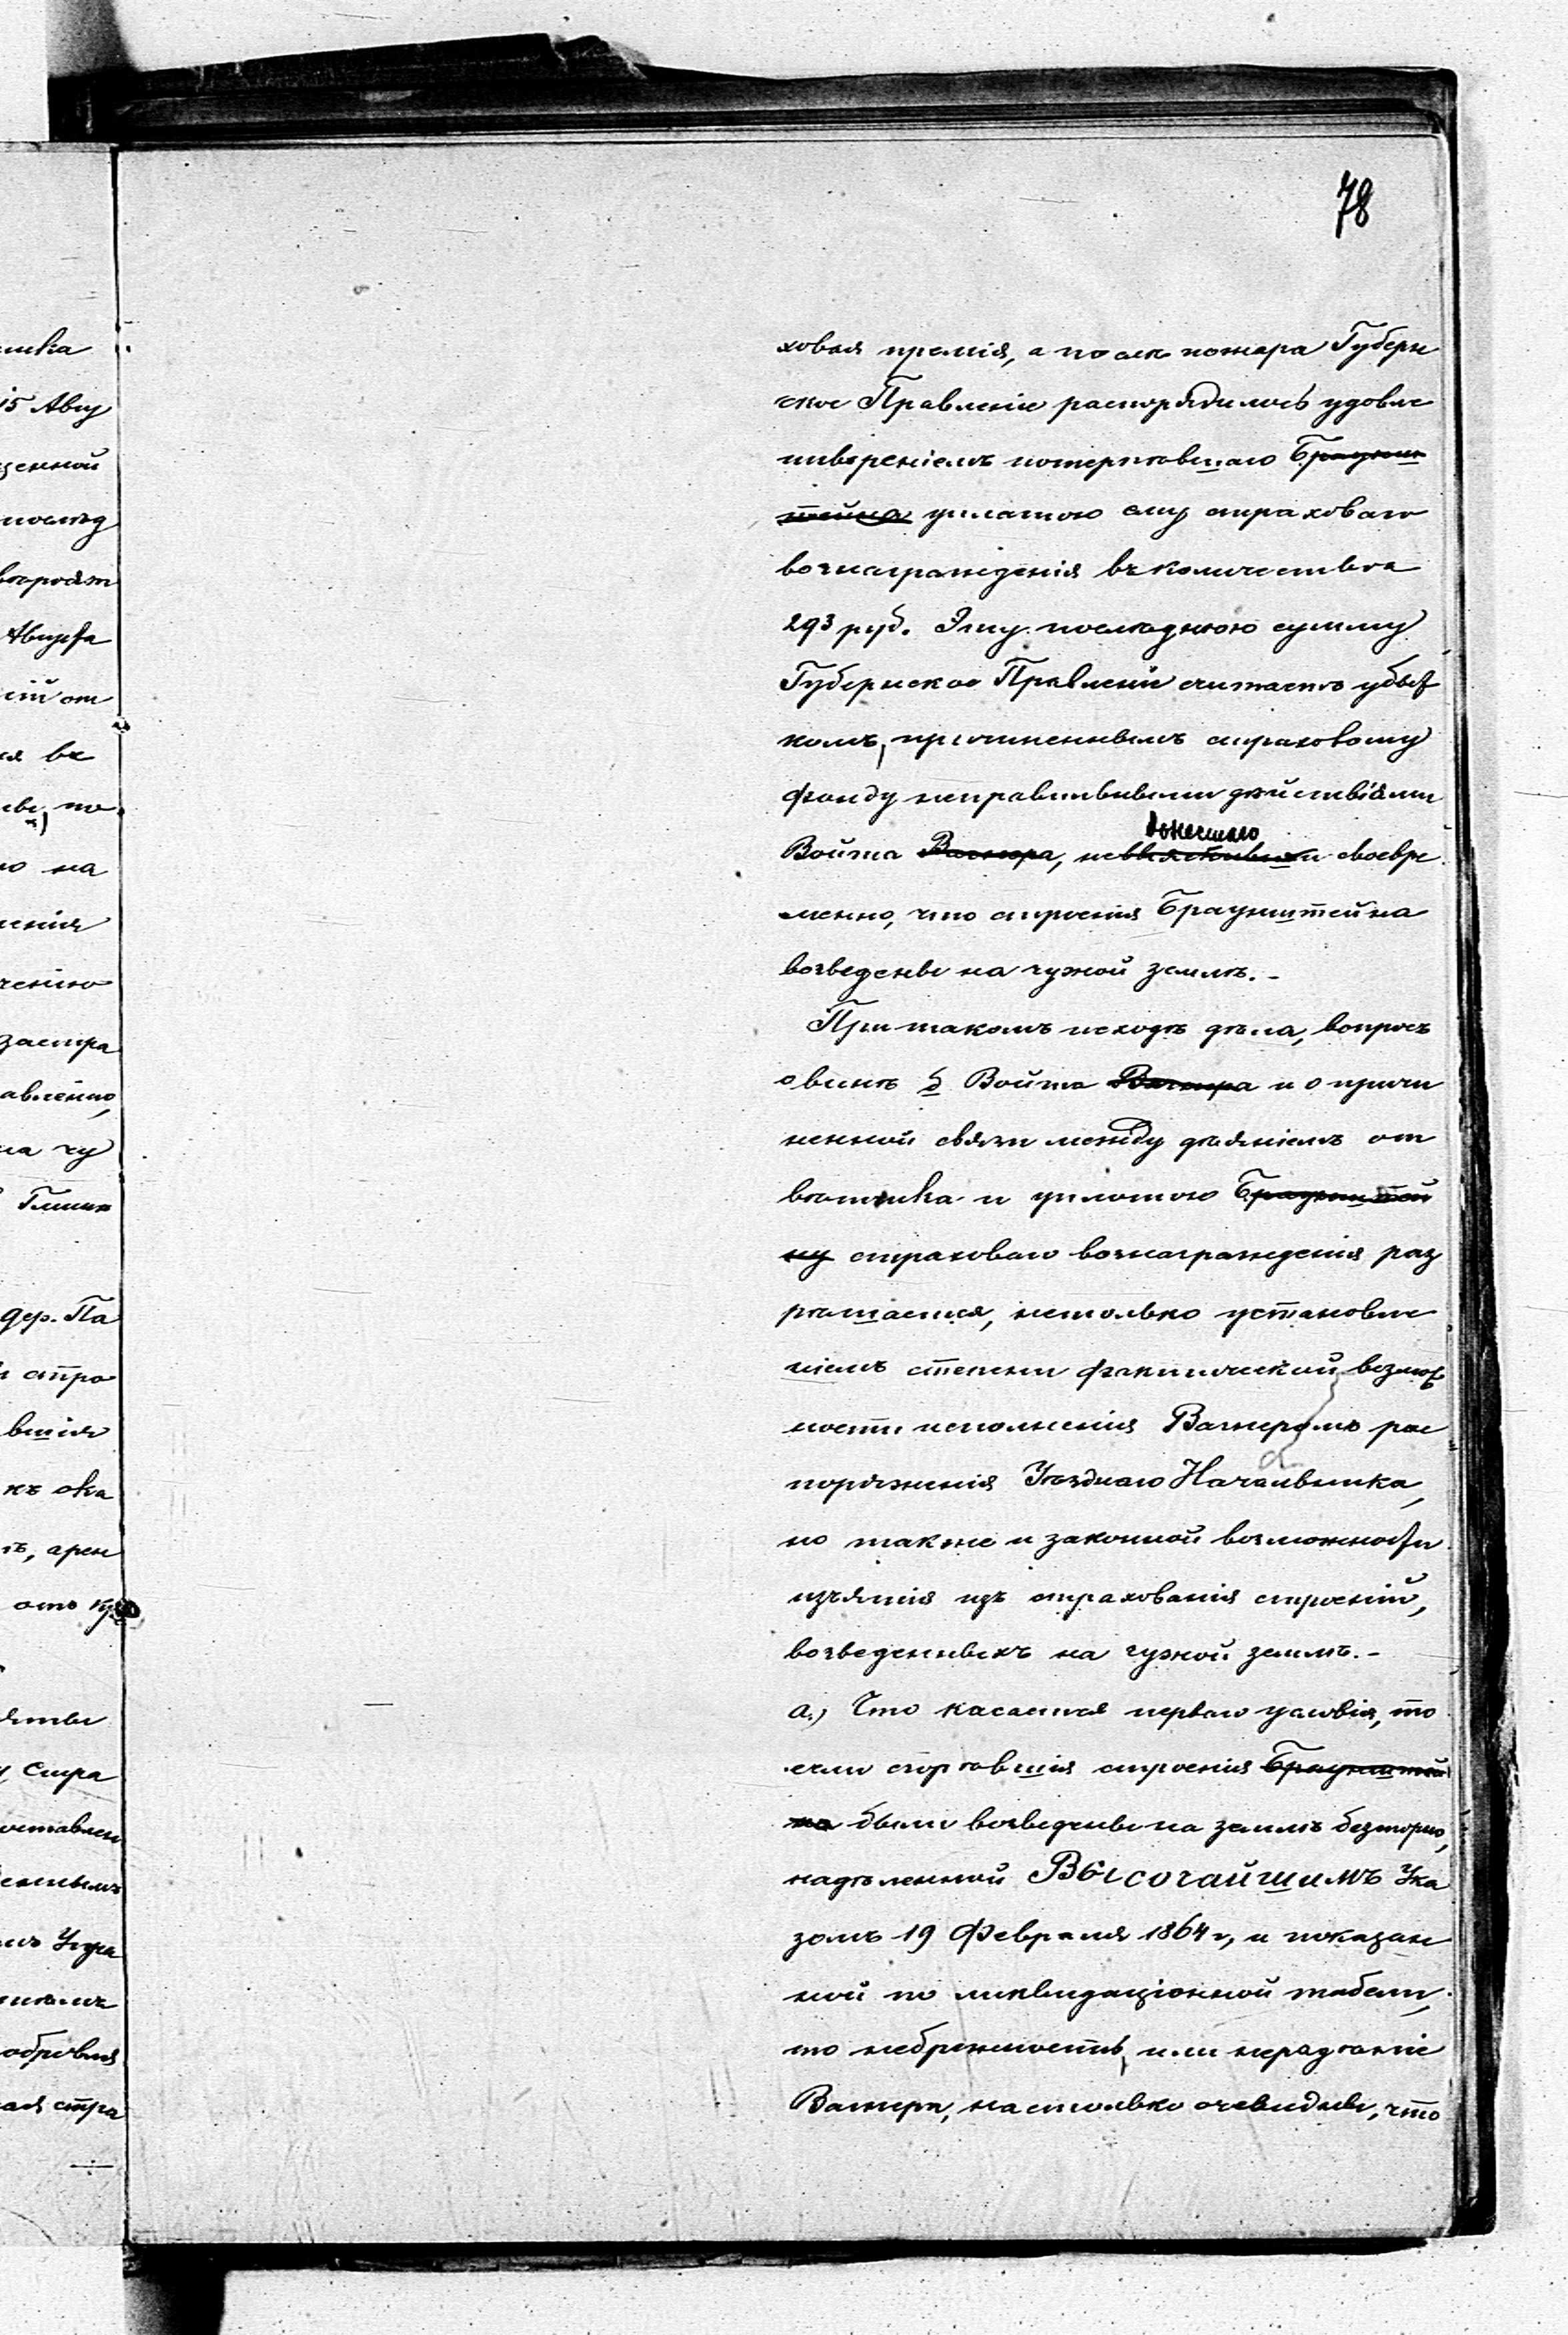 78
ховая премія, а послѣ пожара Губерн
ское Правленіе распорядилось удовле
твореніемъ потерпѣвшаго Браунш
тейна уплатою ему страховаго
вознагражденія въ количествѣ
293 руб. Эту послѣднюю сумму
Губернское Правленіе считаетъ убыт
комъ, причиненнымъ страховому
фонду неправильными дѣйствіями
донесшаго
Войта Вагнера, не своевре
менно, что строенія Браунштейна
возведены на чужой землѣ.-
При такомъ исходѣ дѣла, вопросъ
о винѣ б Войта Вагнера и о причи
ненной связи между дѣяніемъ от
вѣтчика и уплатою Браунштей
ну страховаго вознагражденія раз
рѣшается, нетолько установле
ніемъ степени фактической возмож
ности исполненія Вагнеромъ рас
поряженія Уѣзднаго Начальника,
но также и законной возможности
изъятія изъ страхованія строеній,
возведенныхъ на чужой землѣ.-
а.) Что касается перваго условія, то
если сгорѣвшія строенія Браунштей
на были возведены на землѣ безспорно,
надѣленной Высочайшимъ Ука
зомъ 19 Февраля 1864 г, и показан
ной по ликвидаціонной табели,
то небрежность, или нерадѣніе
Вагнера, настолько очевидны, что
ника
15 Авгу
щенной
послѣд
вѣроят
Августа
ій от
ся въ
то
о на
ненія
ченію
застра
авленію,
на чу
Глинк
дер. Па
и стро
вшія
къ ока
ъ, арен
отъ кр
яты
Стра
оставлен
Упра
ая стра